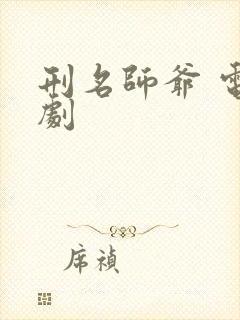 刑名師爺 電
劇
席禎